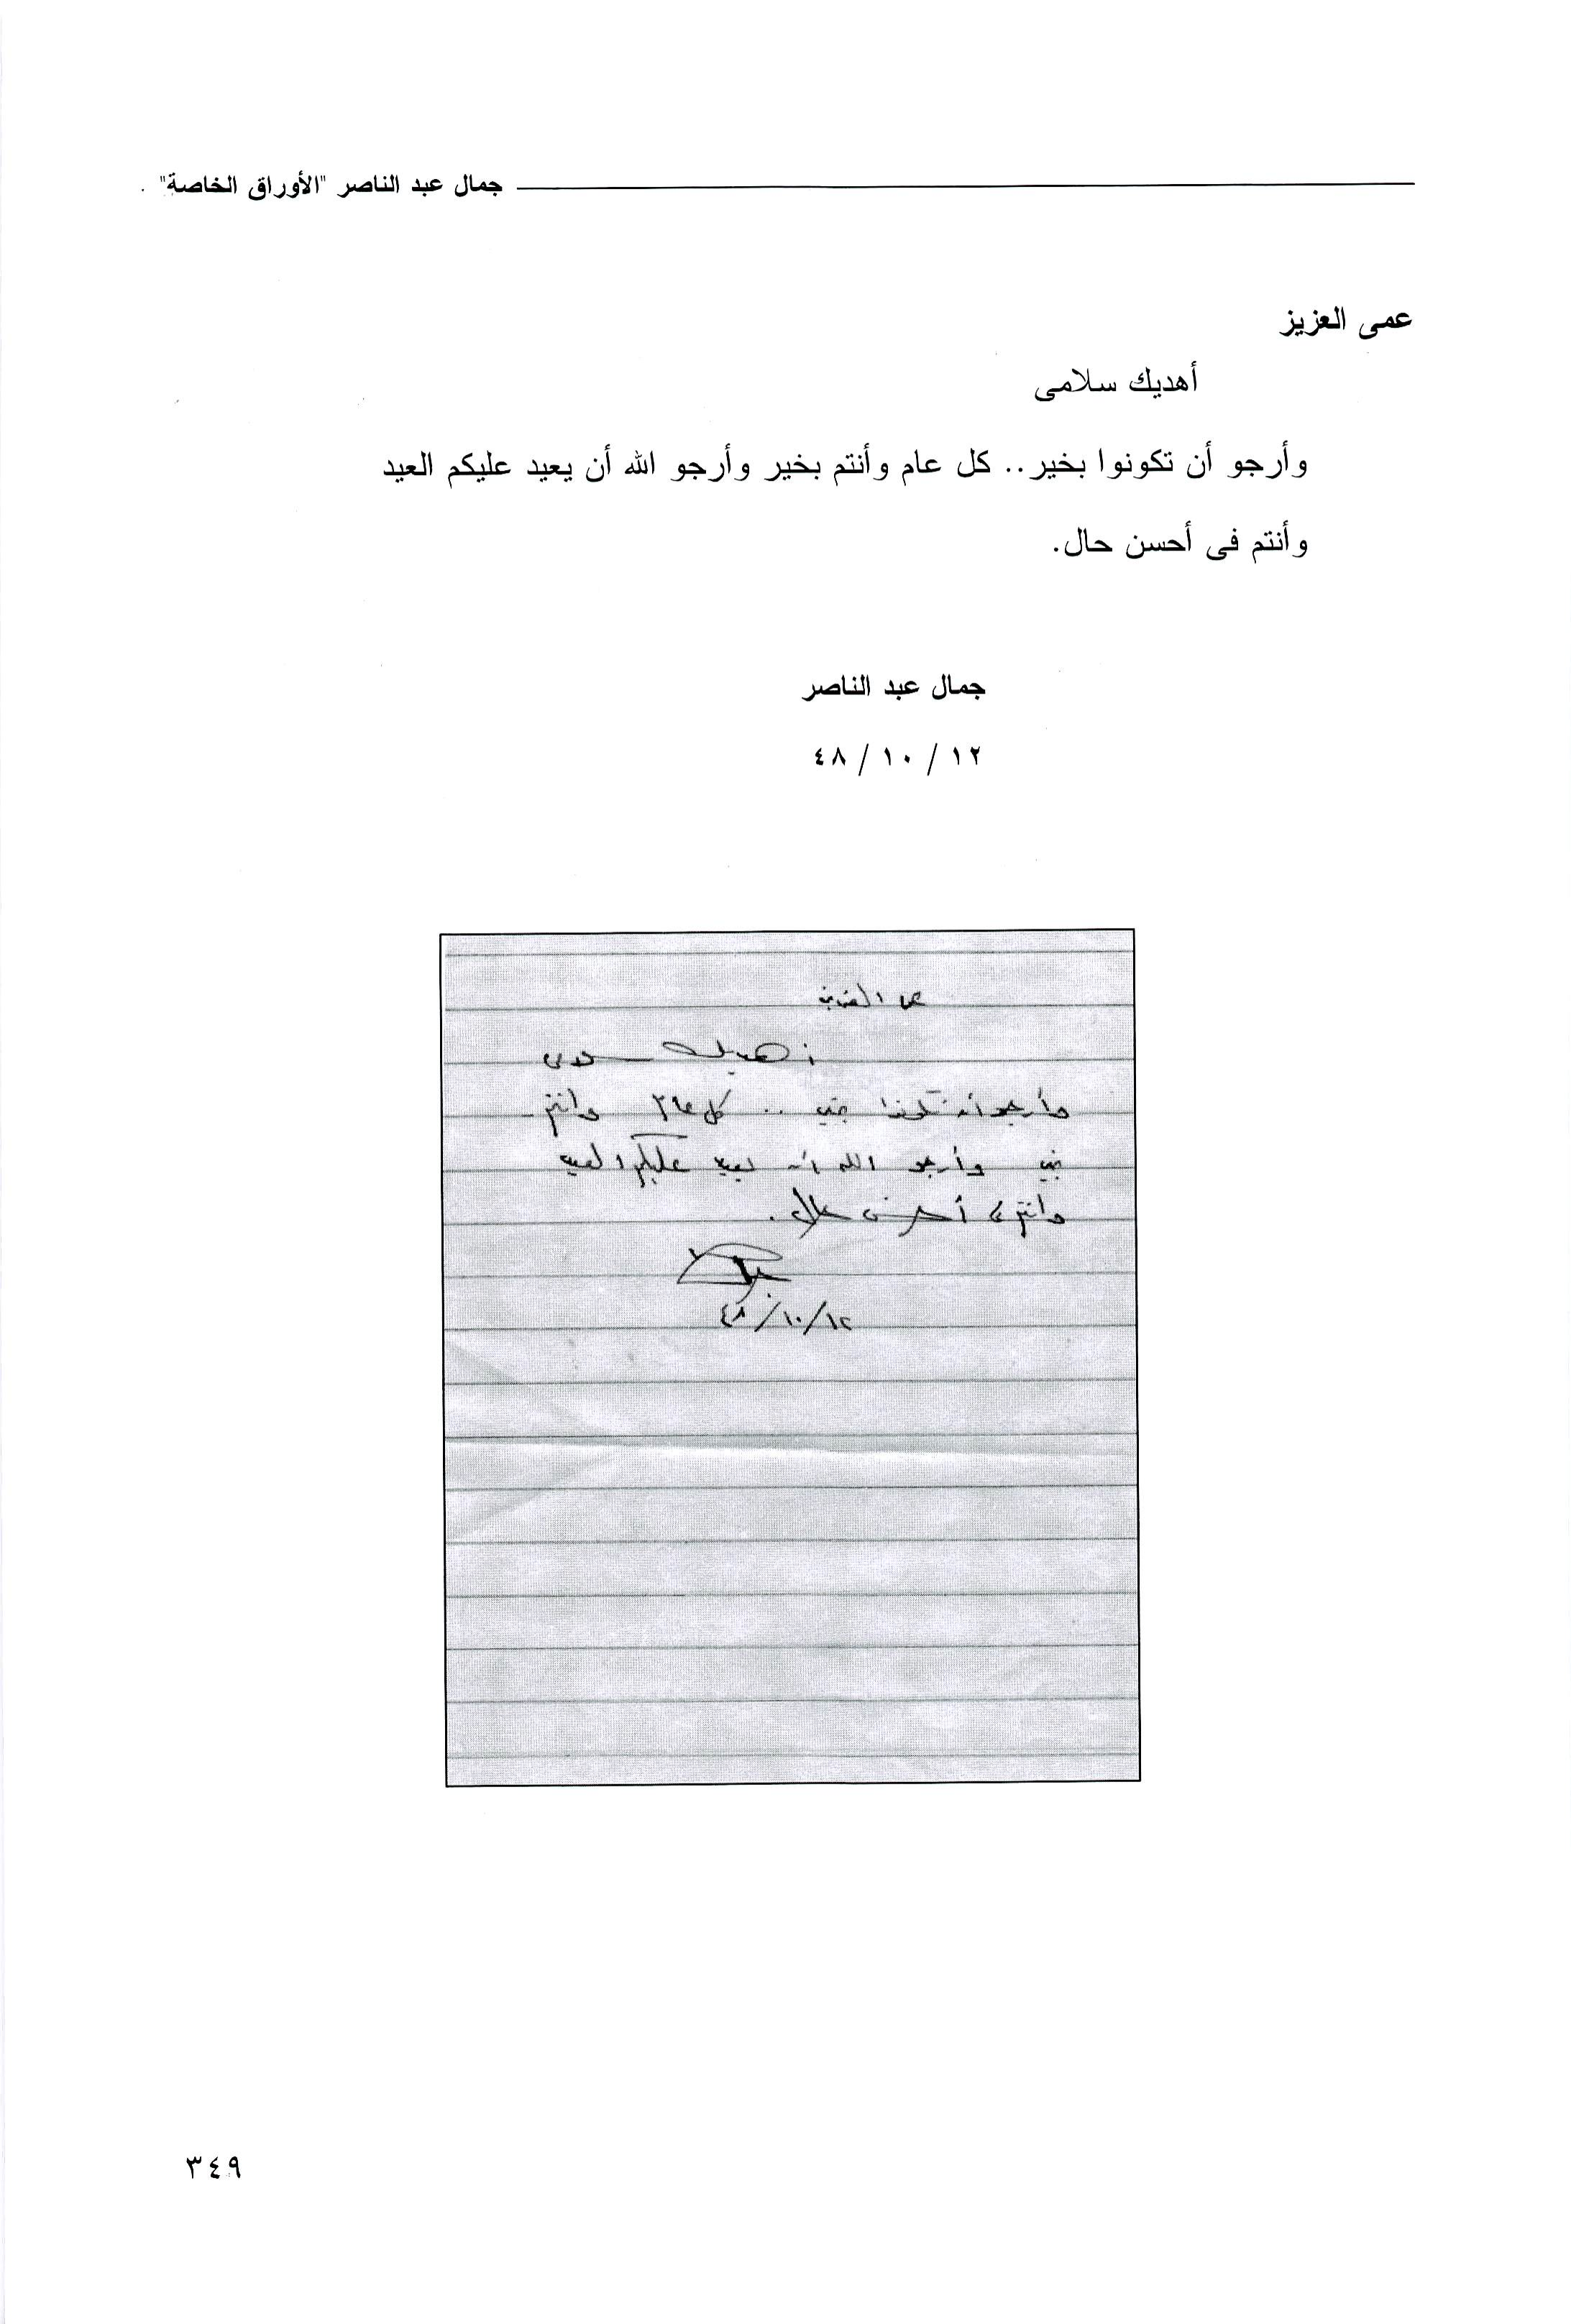 جمال عبد الناصر "الأوراق الخاصة"
عمى العزيز
أهديك سلامى
وأرجو أن تكونوا بخير.. كل عام وأنتم بخير وأرجو الله أن يعيد عليكم العيد
وأنتم فى أحسن حال.
جمال عبد الناصر
١٢ / ١٠ / ٤٨
عمى العزيز
أهديك سلامى
وأرجو أن تكونوا بخير .. كل عام وأنتم
بخير وأرجو الله أن يعيد عليكم العيد
وانتم فى أحسن حال .
٤٨/١٠/١٢
٣٤٩